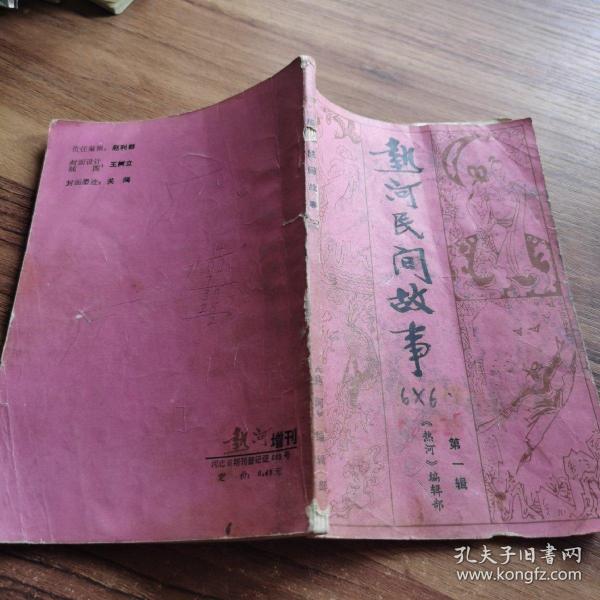 热河民间故事
6×6
第一辑
《热河》编辑部
民间故事
《热河》编辑部
责任编辑：赵利群
封面设计、
插图：王树立
热河增刊
河北省期刊登记证
定价：0.48元
孔夫子旧书网
www.kongfz.com